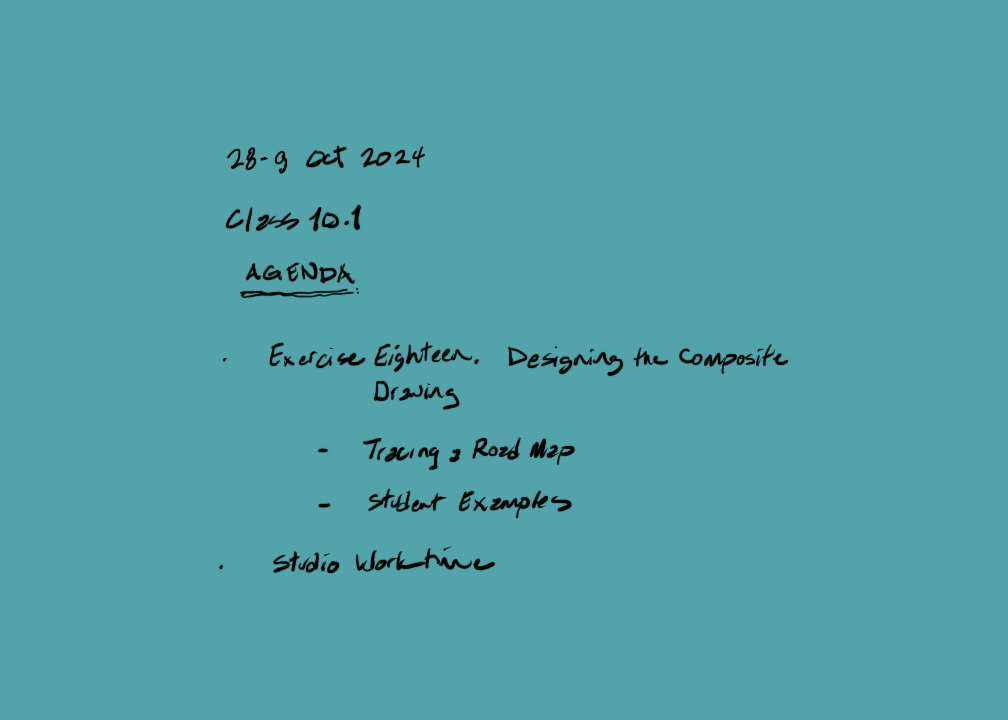 28-9 Oct 2024
Class 10.1
AGENDA
· Exercise Eighteen. Designing the Composite
Drawing
- Tracing a Road Map
- Student Examples
· Studio Worktime